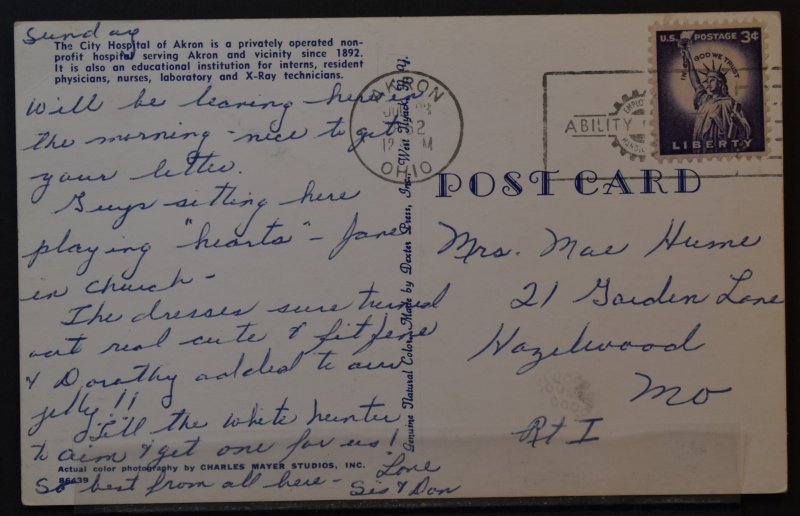 Sunday
The City Hospital of Akron is a privately operated non-
profit hospital serving Akron and vicinity since 1892.
It is also an educational institution for interns, resident
physicians, nurses, laboratory and X-Ray technicians.
Will be leaving here in
the morning - nice to get
your letter.
Guys sitting here
playing "hearts" - Jane
in church -
The dresses sure turned
out real cute & fit fine
& Dorathy added to our
jelly!!
Tell the white hunter
to aim & get one for us!
So best from all here -
Love
Sis & Don
Actual color photography by CHARLES MAYER STUDIOS, INC.
86639
Genuine Natural Color Made by Dexter Press, Inc., West Nyack, N. Y.
AKRON
OHIO
ABILITY
U.S. POSTAGE 3¢
IN GOD WE TRUST
LIBERTY
POST CARD
Mrs. Mae Hume
21 Garden Lane
Hazelwood
Mo
Rt I